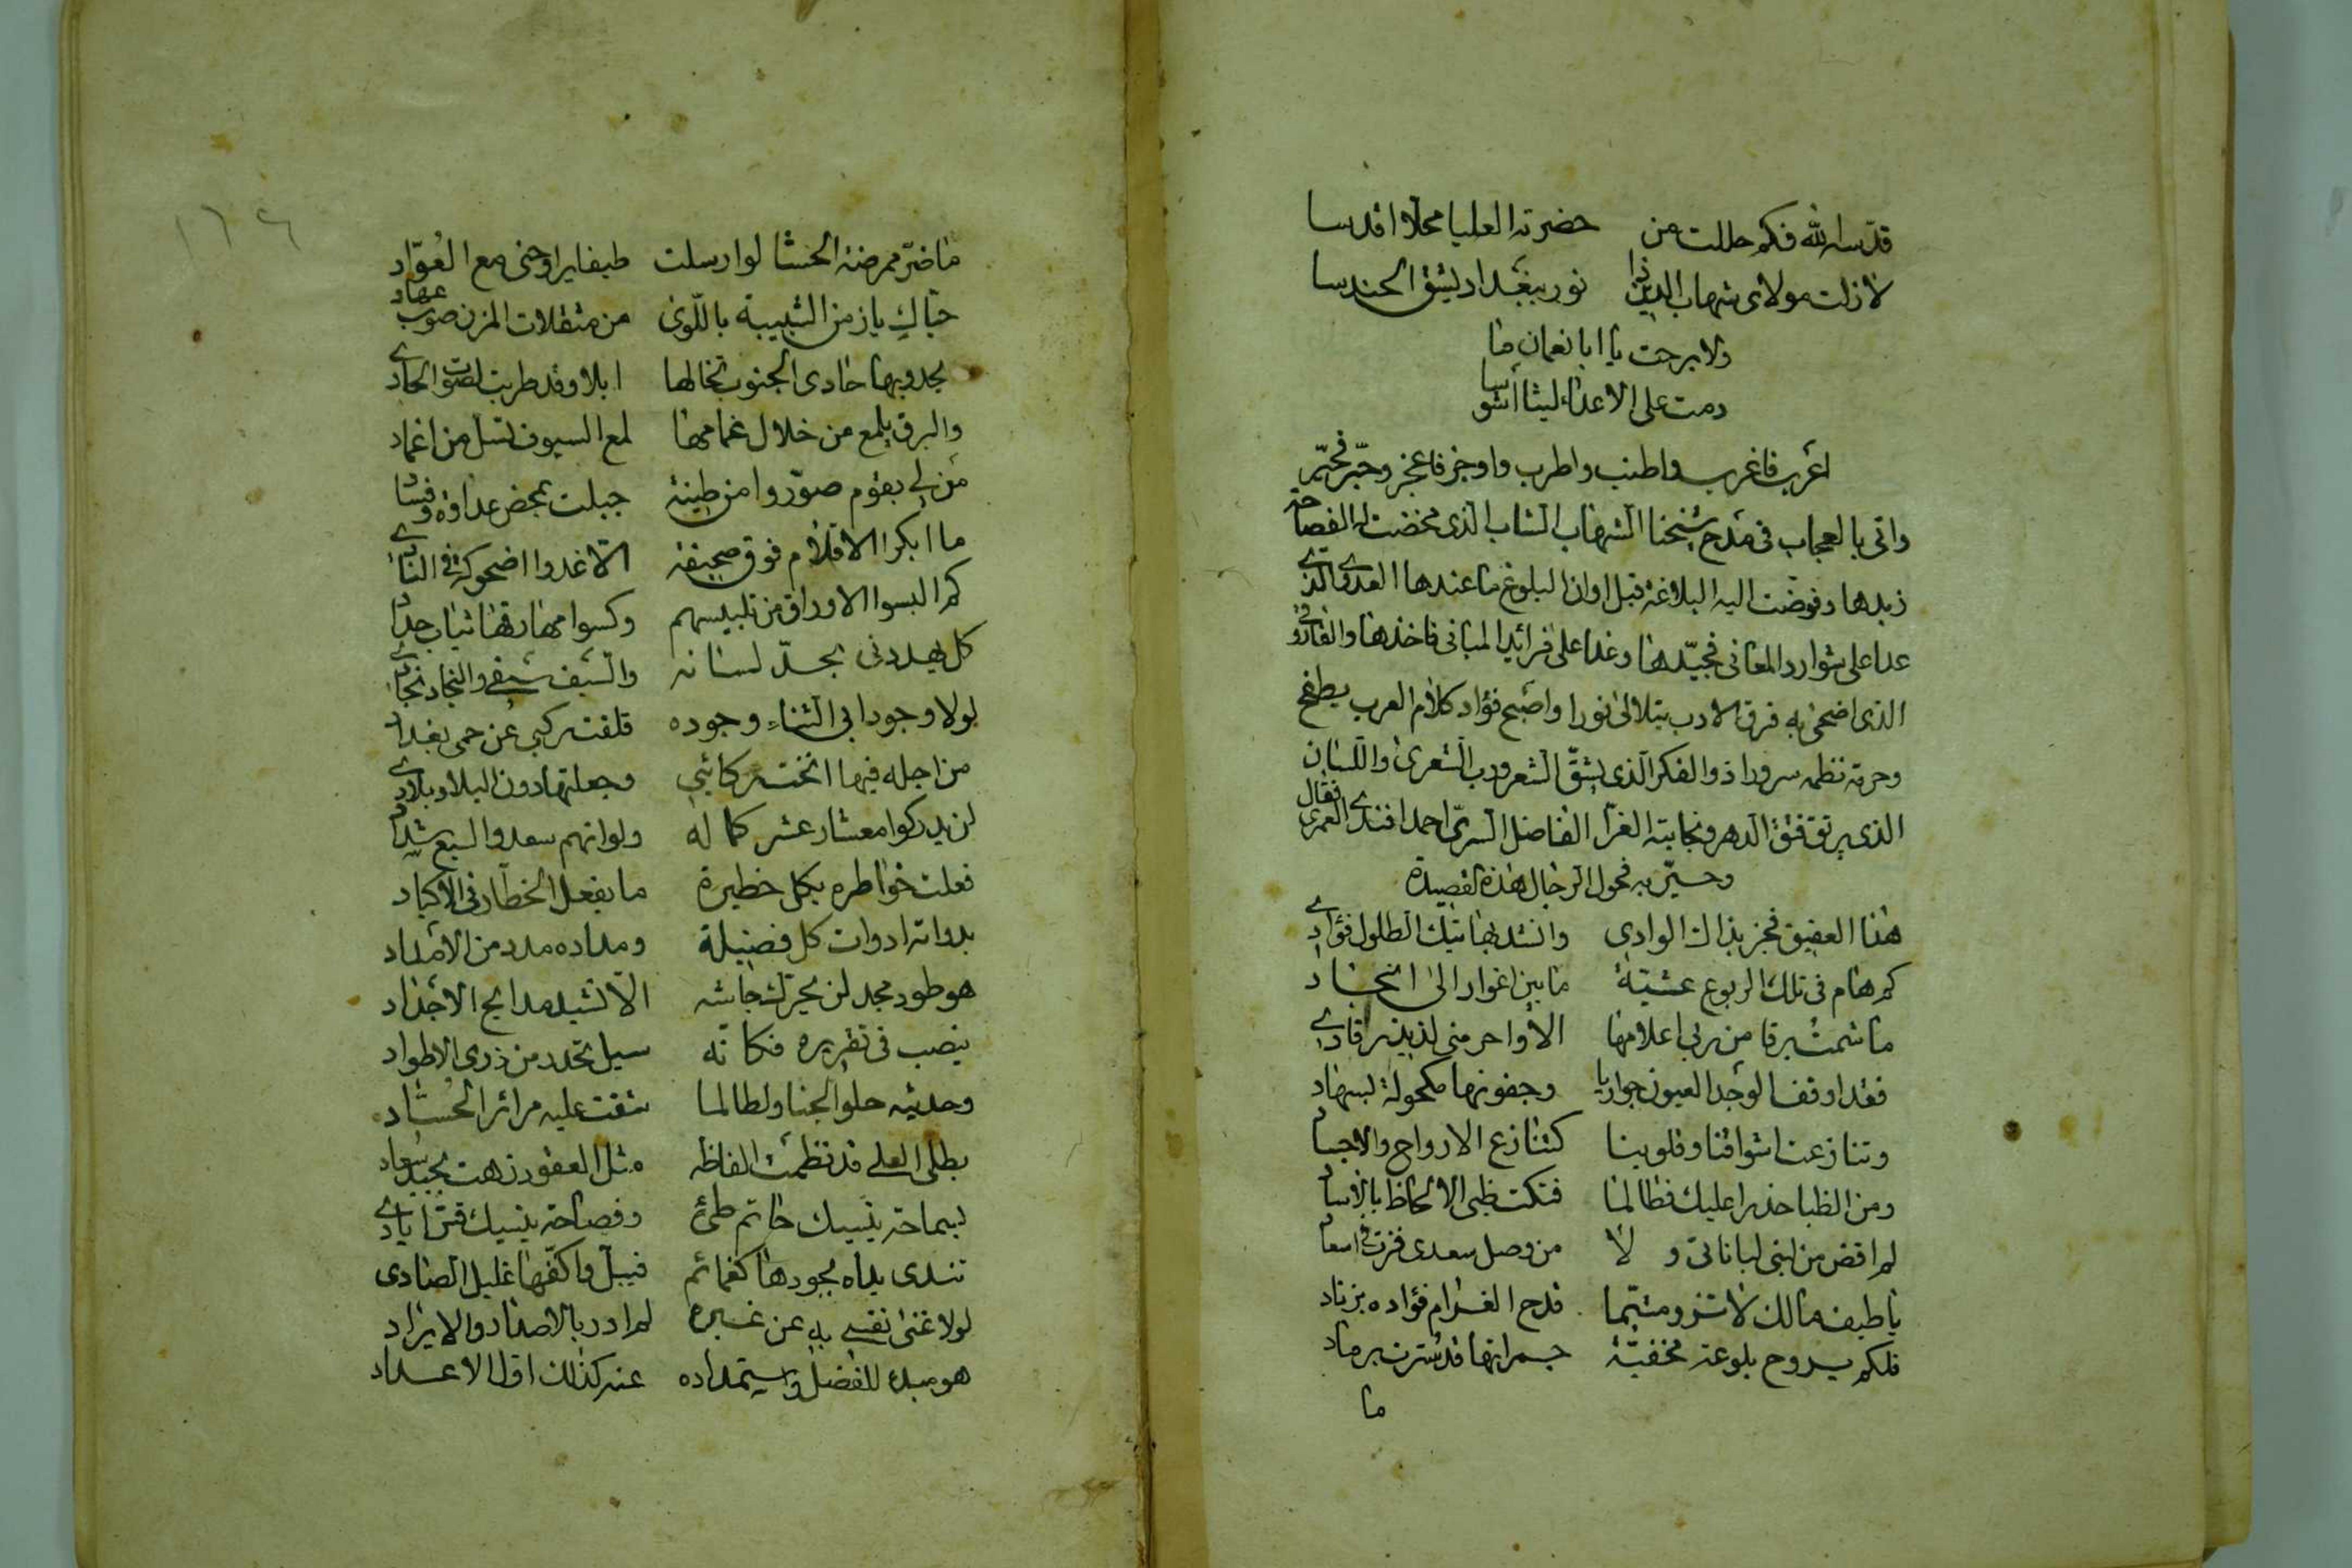 قدّسه الله فكم حللت من حضرته العليا محلا اقدسا
لا زلت مولاى شهاب الدين ذا نور ببغداد يشق الحندسا
ولا برحت يا ابا نعمان ما
دمت على الاعداء ليثا اشوسا
اعرب فاغرب واطنب واطرب واوجز فاعجز وحبّر فحيّر
واتى بالعجاب فى مدح شيخنا الشهاب الشاب الذى مخضت له الفصاحة
زبدها وفوضت اليه البلاغة قبل اوان البلوغ ما عندها العدوى الذى
عدا على شوارد المعانى فجيّدها وغدا على فرائد المبانى فاخذها والفاروقى
الذى اضحى به فرق الادب يتلالئ نورا واصبح فؤاد كلام العرب يطفح
وحرمة نظمه سرورا ذو الفكر الذى يشقّ الشعر ودب الشعرى واللسان
الذى يرتق فتق الدهر ونجابته الغرّا الفاضل السرىّ احمد افندى العمرى فقال
وحيّر به فحول الرجال هذه القصيدة
هذا العقيق فجز بذاك الوادى وانشد بهاتيك الطلول فؤادى
كم هام فى تلك الربوع عشيّة ما بين اغوار الى انجاد
ما شمت برقا من ربى اعلامها الا واحرمنى لذيذ رقادى
فغدا وقفا لوجد العيون جواريا وجفونها مكحولة بسهاد
وتنازعت اشواقنا وقلوبنا كتنازع الارواح والاجساد
ومن الظبا حذرا عليك فطالما فتكت ظبى الالحاظ بالآساد
لم اقض من لبنى لباناتى ولا من وصل سعدى فزت فى اسعاد
يا طيف مالك لا تزور متيّما قدح الغرام فؤاده بزناد
فلكم يروح بلوعة مخفيّة جمراتها قد سترت برماد
ما
ما ضرّ ممرضة الحشا لو ارسلت طيفا يراوحنى مع العوّاد
حيّاك يا زمن الشبيبة باللّوى من مثقلات المزن صوب عهاد
يحدو بها حادى الجنوب تخالها ابلا وقد طربت لصوت الحادى
والبرق يلمع من خلال غمامها لمع السيوف تسل من اغماد
من لى بقوم صوّروا من طينة جبلت بمحض عداوة وفساد
ما ابكرا الاقلام فوق صحيفة الّا غدوا اضحوكة فى النادى
كم البسوا الاوراق من تلبيسهم وكسوا مهارقها ثياب حداد
كل يهددنى بحدّ لسانه والسيف سيفى والنجاد نجادى
لولا وجود ابى الثناء وجوده قلقت ركبى عن حمى بغداد
من اجله فيها انخت ركائبى وجعلتها دون البلاد بلادى
لن يدركوا معشار عشر كماله ولو انهم سعدوا السبع شداد
فعلت خواطره بكل خطيرة ما يفعل الخطّار فى الاكباد
بدواته ادوات كل فضيلة ومداده مدد من الامداد
هو طود مجد لن يحرّك جاشه الّا نشيد مدايح الاجداد
ينصب فى تقريره فكانّه سيل تحدر من ذرى الاطواد
وحديثه حلو الجنا ولطالما شقت عليه مرائر الحسّاد
بطلى العلى قد نظمت الفاظه مثل العقود زهت بجيد سعاد
بسماحة ينسيك حاتم طئ وفصاحة ينسيك قسّ ايادى
تندى يداه بجودها كغمائم فيبلّ واكفّها غليل الصادى
لولا غنى نفسى به عن غيره لم ادر بالاصدار والايراد
هو مبدء للفضل واستمداده عنه كذلك اول الاعداد